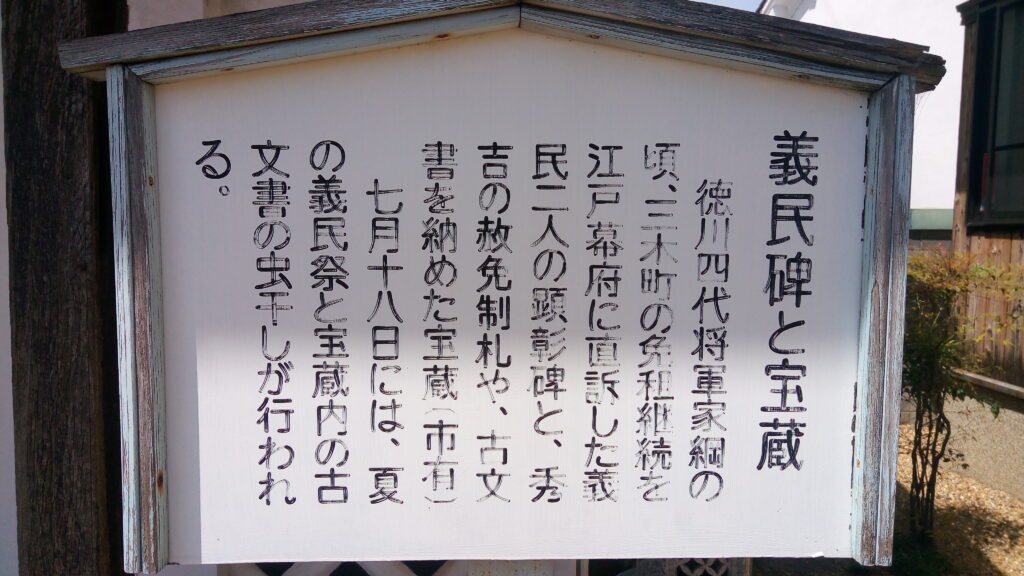 義民碑と宝蔵
徳川四代将軍家綱の
頃、三木町の免租継続を
江戸幕府に直訴した義
民二人の顕彰碑と、秀
吉の赦免制札や、古文
書を納めた宝蔵(市有)
七月十八日には、夏
の義民祭と宝蔵内の古
文書の虫干しが行われ
る。